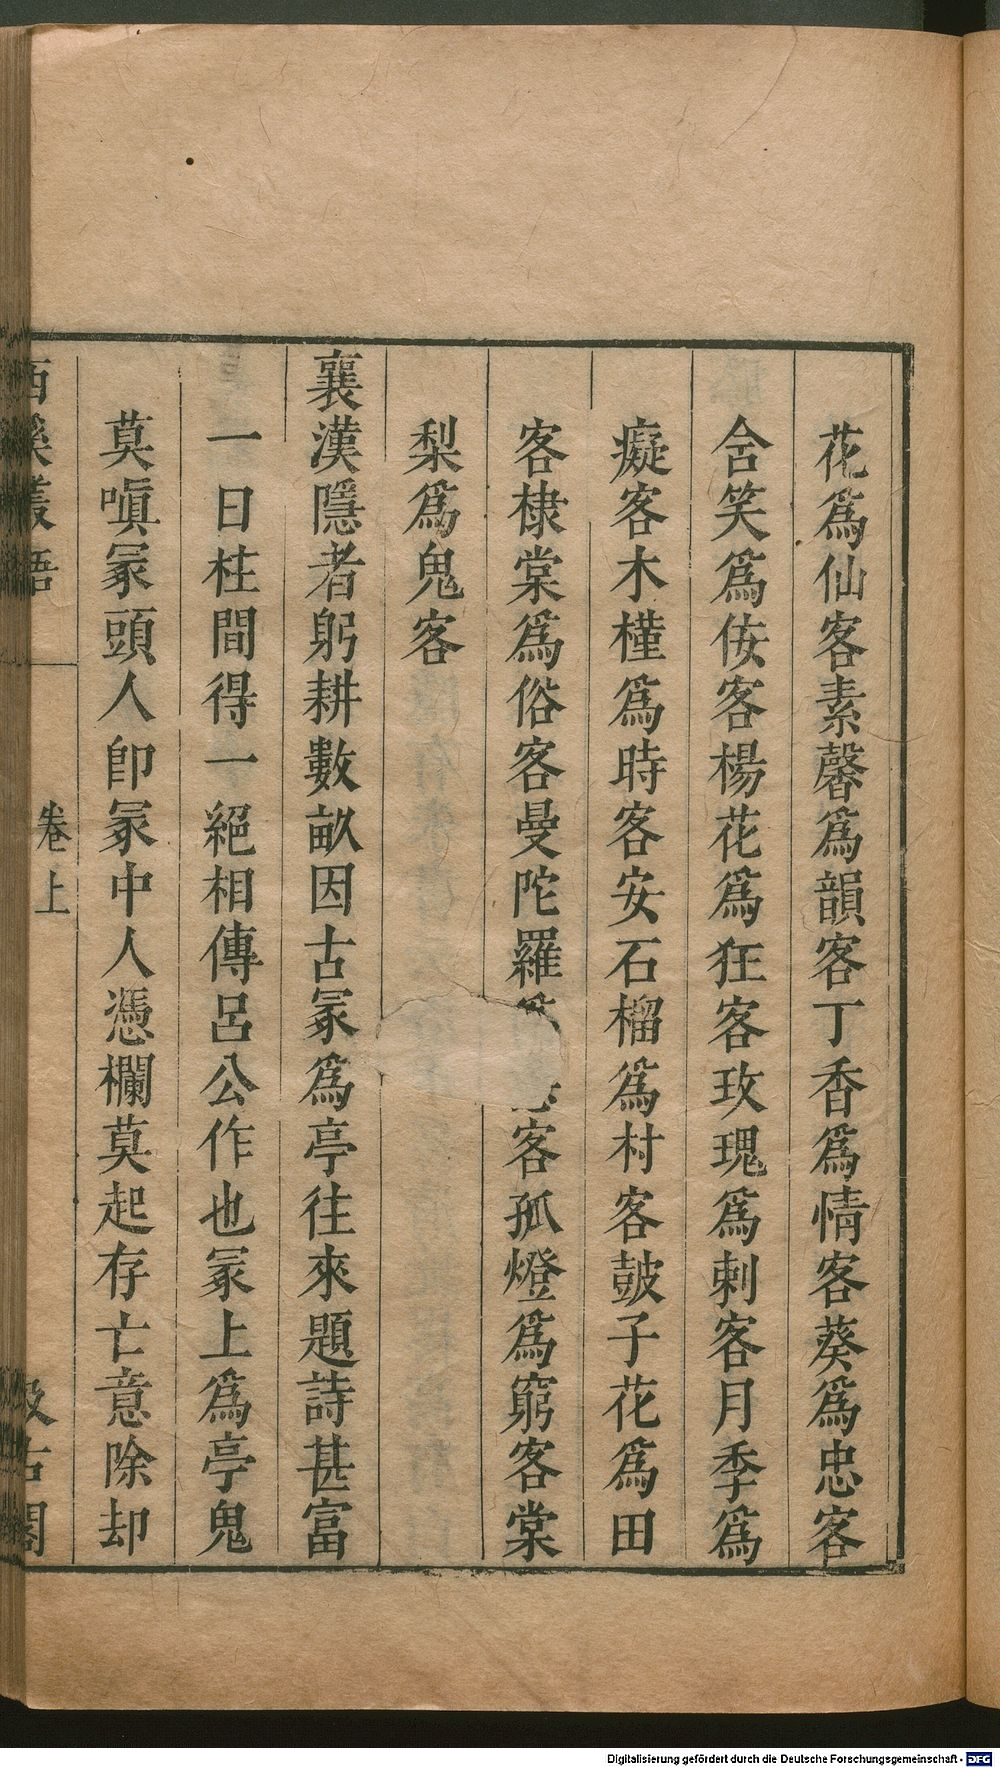 花爲仙客素馨爲韻客丁香爲情客葵爲忠客
含笑爲佞客楊花爲狂客玫瑰爲刺客月季爲
癡客木槿爲時客安石榴爲村客鼓子花爲田
客棣棠爲俗客曼陀羅爲客孤燈爲窮客棠
梨爲鬼客
襄漢隱者躬耕數畝因古冢爲亭往來題詩甚富
一日柱間得一絕相傳呂公作也冢上爲亭鬼
莫嗔冢頭人卽冢中人憑欄莫起存亡意除却
西溪叢語
卷上
汲古閣
Digitalisierung gefördert durch die Deutsche Forschungsgemeinschaft - DFG